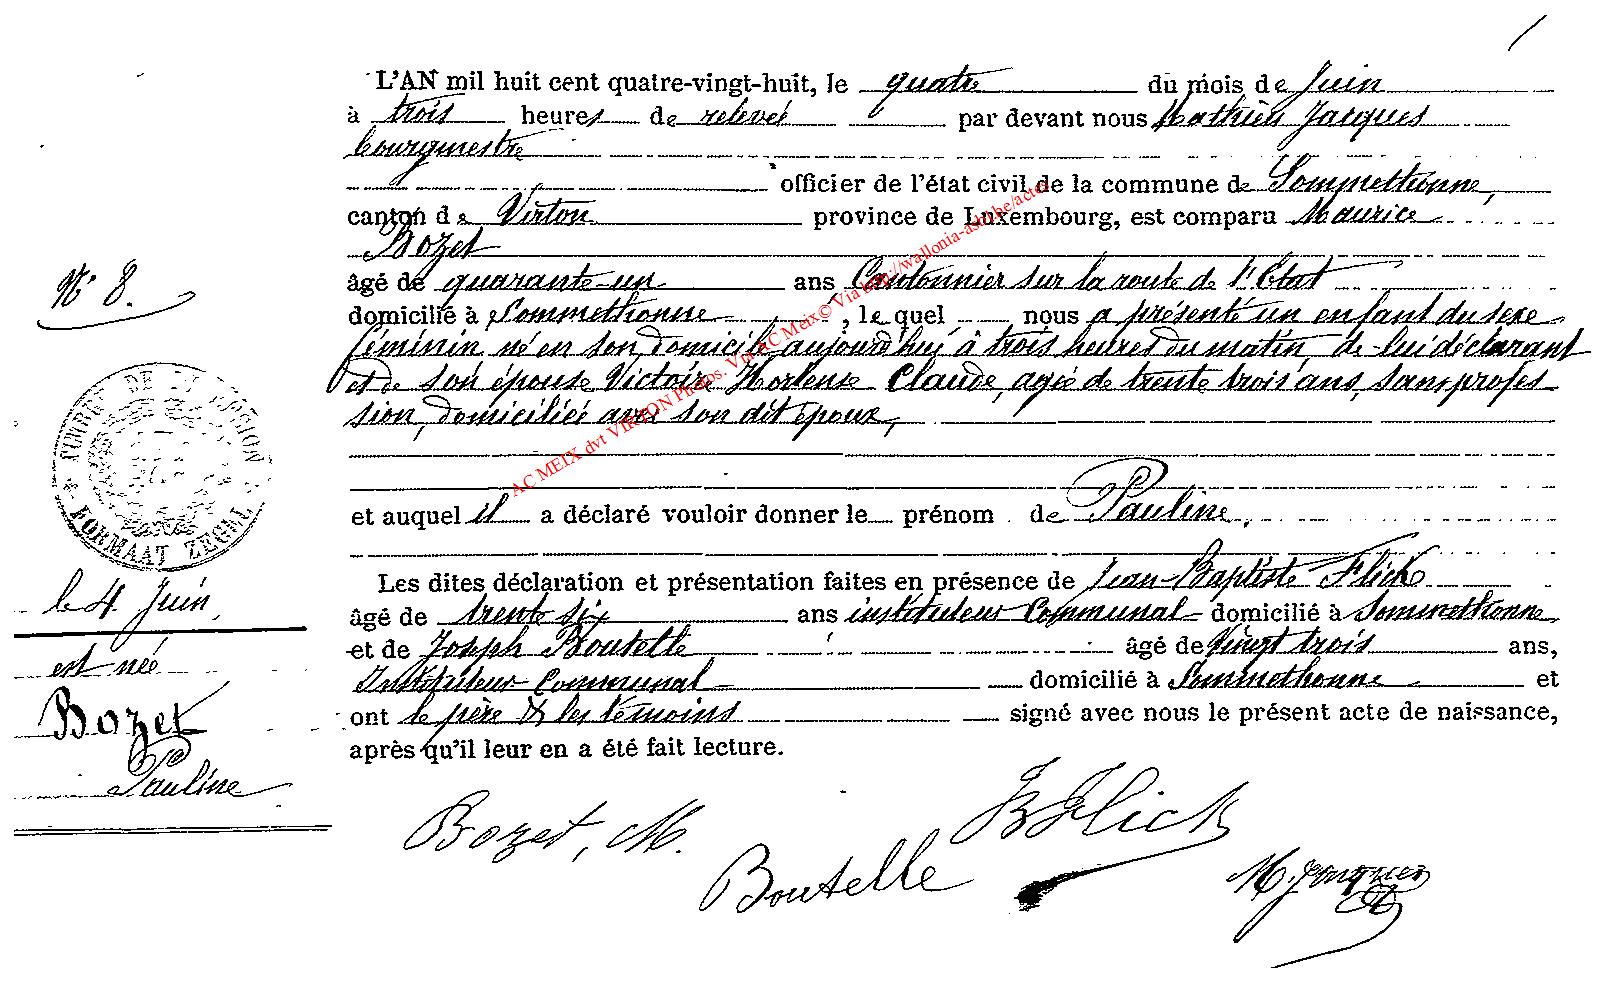 L'AN mil huit cent quatre-vingt-huit, le quatre du mois de Juin
à trois heures de relevée par devant nous Mathieu Jacques
bourgmestre
officier de l'état civil de la commune de Sommethonne,
canton de Virton province de Luxembourg, est comparu Maurice
Bozet
âgé de quarante-un ans Cantonnier sur la route de l'Etat
domicilié à Sommethonne, le quel nous a présenté un enfant du sexe
féminin, né en son domicile, aujourd'hui à trois heures du matin, de lui déclarant
et de son épouse Victoire Hortense Claude, agée de trente trois ans, sans profes-
sion, domiciliée avec son dit époux,
et auquel il a déclaré vouloir donner le prénom de Pauline,
Les dites déclaration et présentation faites en présence de Jean-Baptiste Flick
âgé de trente six ans instituteur Communal domicilié à Sommethonne
et de Joseph Boutelle âgé de vingt trois ans,
Instituteur Communal domicilié à Sommethonne et
ont le père & les témoins signé avec nous le présent acte de naissance,
après qu'il leur en a été fait lecture.
Bozet, M.
JBFlick
Boutelle
M. Jacques
N° 8.
TIMBRE DE DIMENSION
FORMAAT ZEGEL
le 4 Juin,
est née
Bozet
Pauline
AC MEIX dvt VIRTON Photos. Via AC Meix© Via http://wallonia-asbl.be/actes